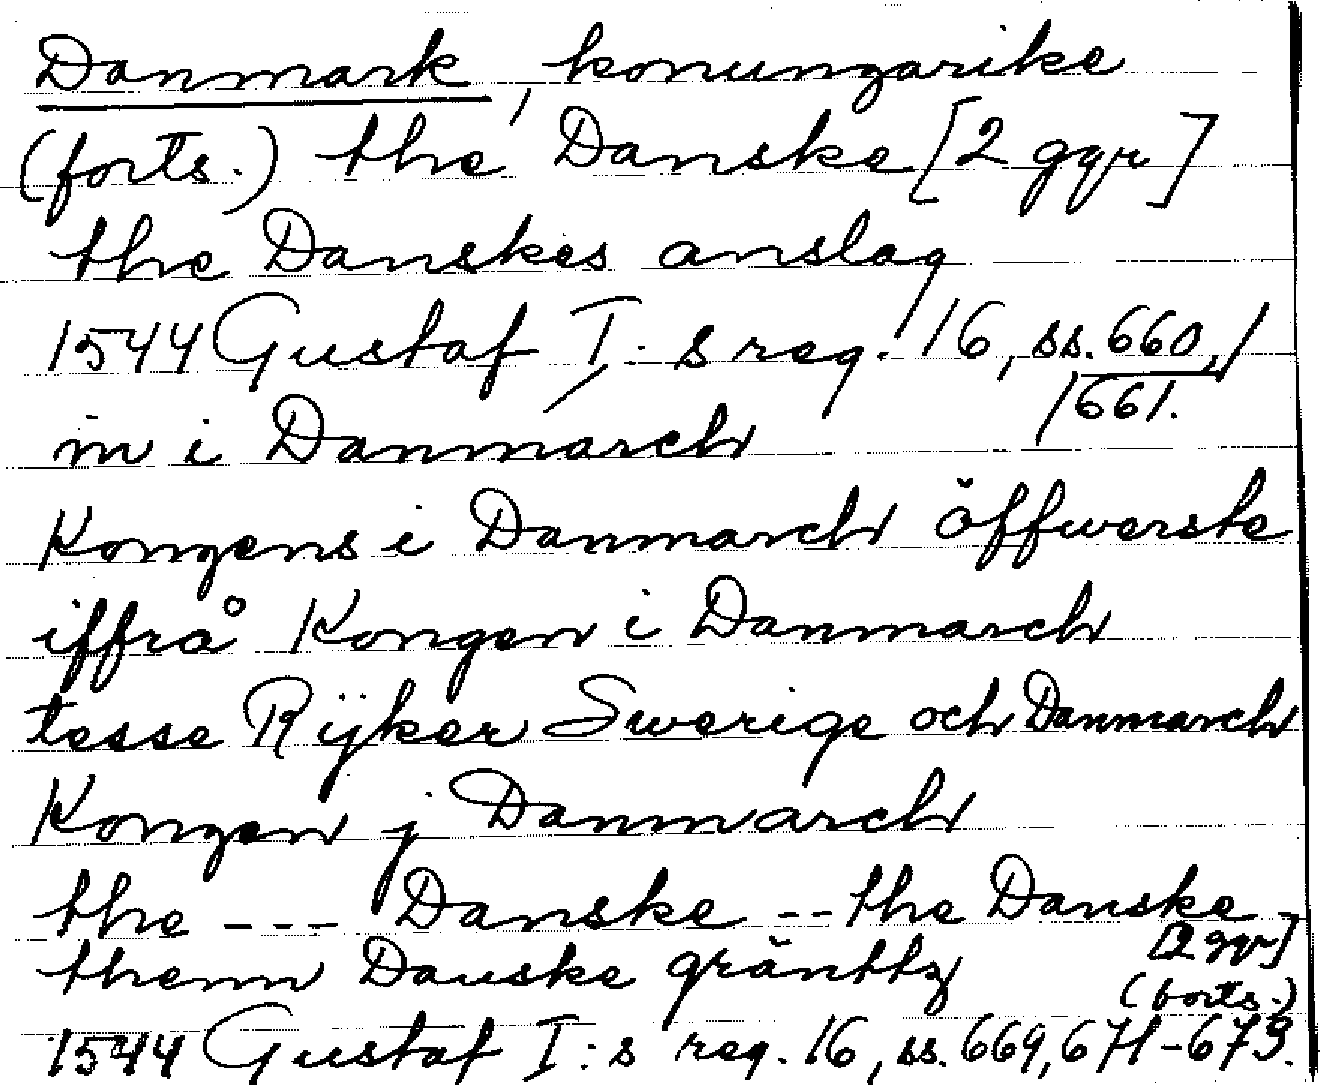 Danmark, konungarike
(forts.) the Danske [2 ggr]
the Danskes anslag
1544 Gustaf I:s reg. 16, ss. 660,
661.
in i Danmarch
Kongens i Danmarch öffwerste
iffrå Kongen i Danmarch
tesse Rijker Swerige och Danmarch
Kongen j Danmarch
the --- Danske -- the Danske
[2 ggr]
thenn Danske gränttz
(forts.)
1544 Gustaf I:s reg. 16, ss. 669, 671-673.